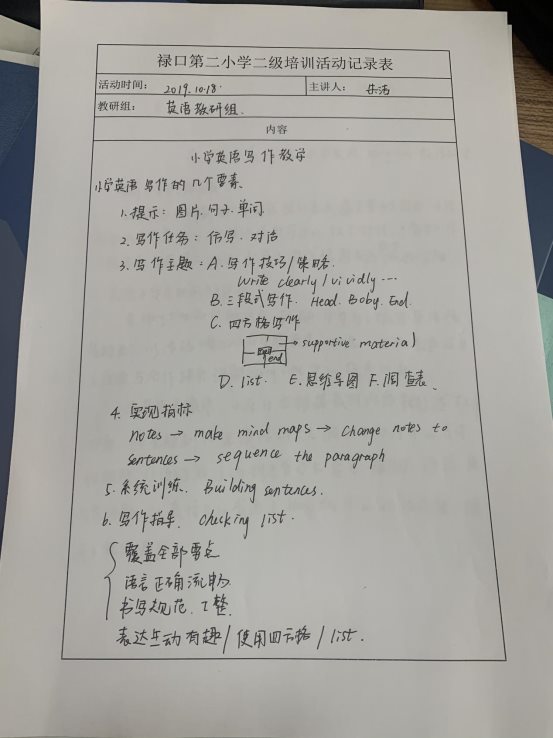 禄口第二小学二级培训活动记录表
活动时间： 2019.10.18. 主讲人： 朱洁
教研组： 英语教研组.
内容
小学英语写作教学
小学英语写作的几个要素.
1. 提示: 图片.句子.单词.
2. 写作任务: 仿写. 对话
3. 写作主题: A. 写作技巧/策略.
Write clearly / vividly ...
B. 三段式写作. Head. Boby. End.
C. 四方格写作
→ supportive material
end
D. list. E. 思维导图 F. 调查表.
4. 实现指标
notes → make mind maps → change notes to
sentences → sequence the paragraph
5. 系统训练. Building sentences.
6. 写作指导. checking list.
覆盖全部要点
语言正确流畅
书写规范.工整.
表达生动有趣/使用四方格/list.